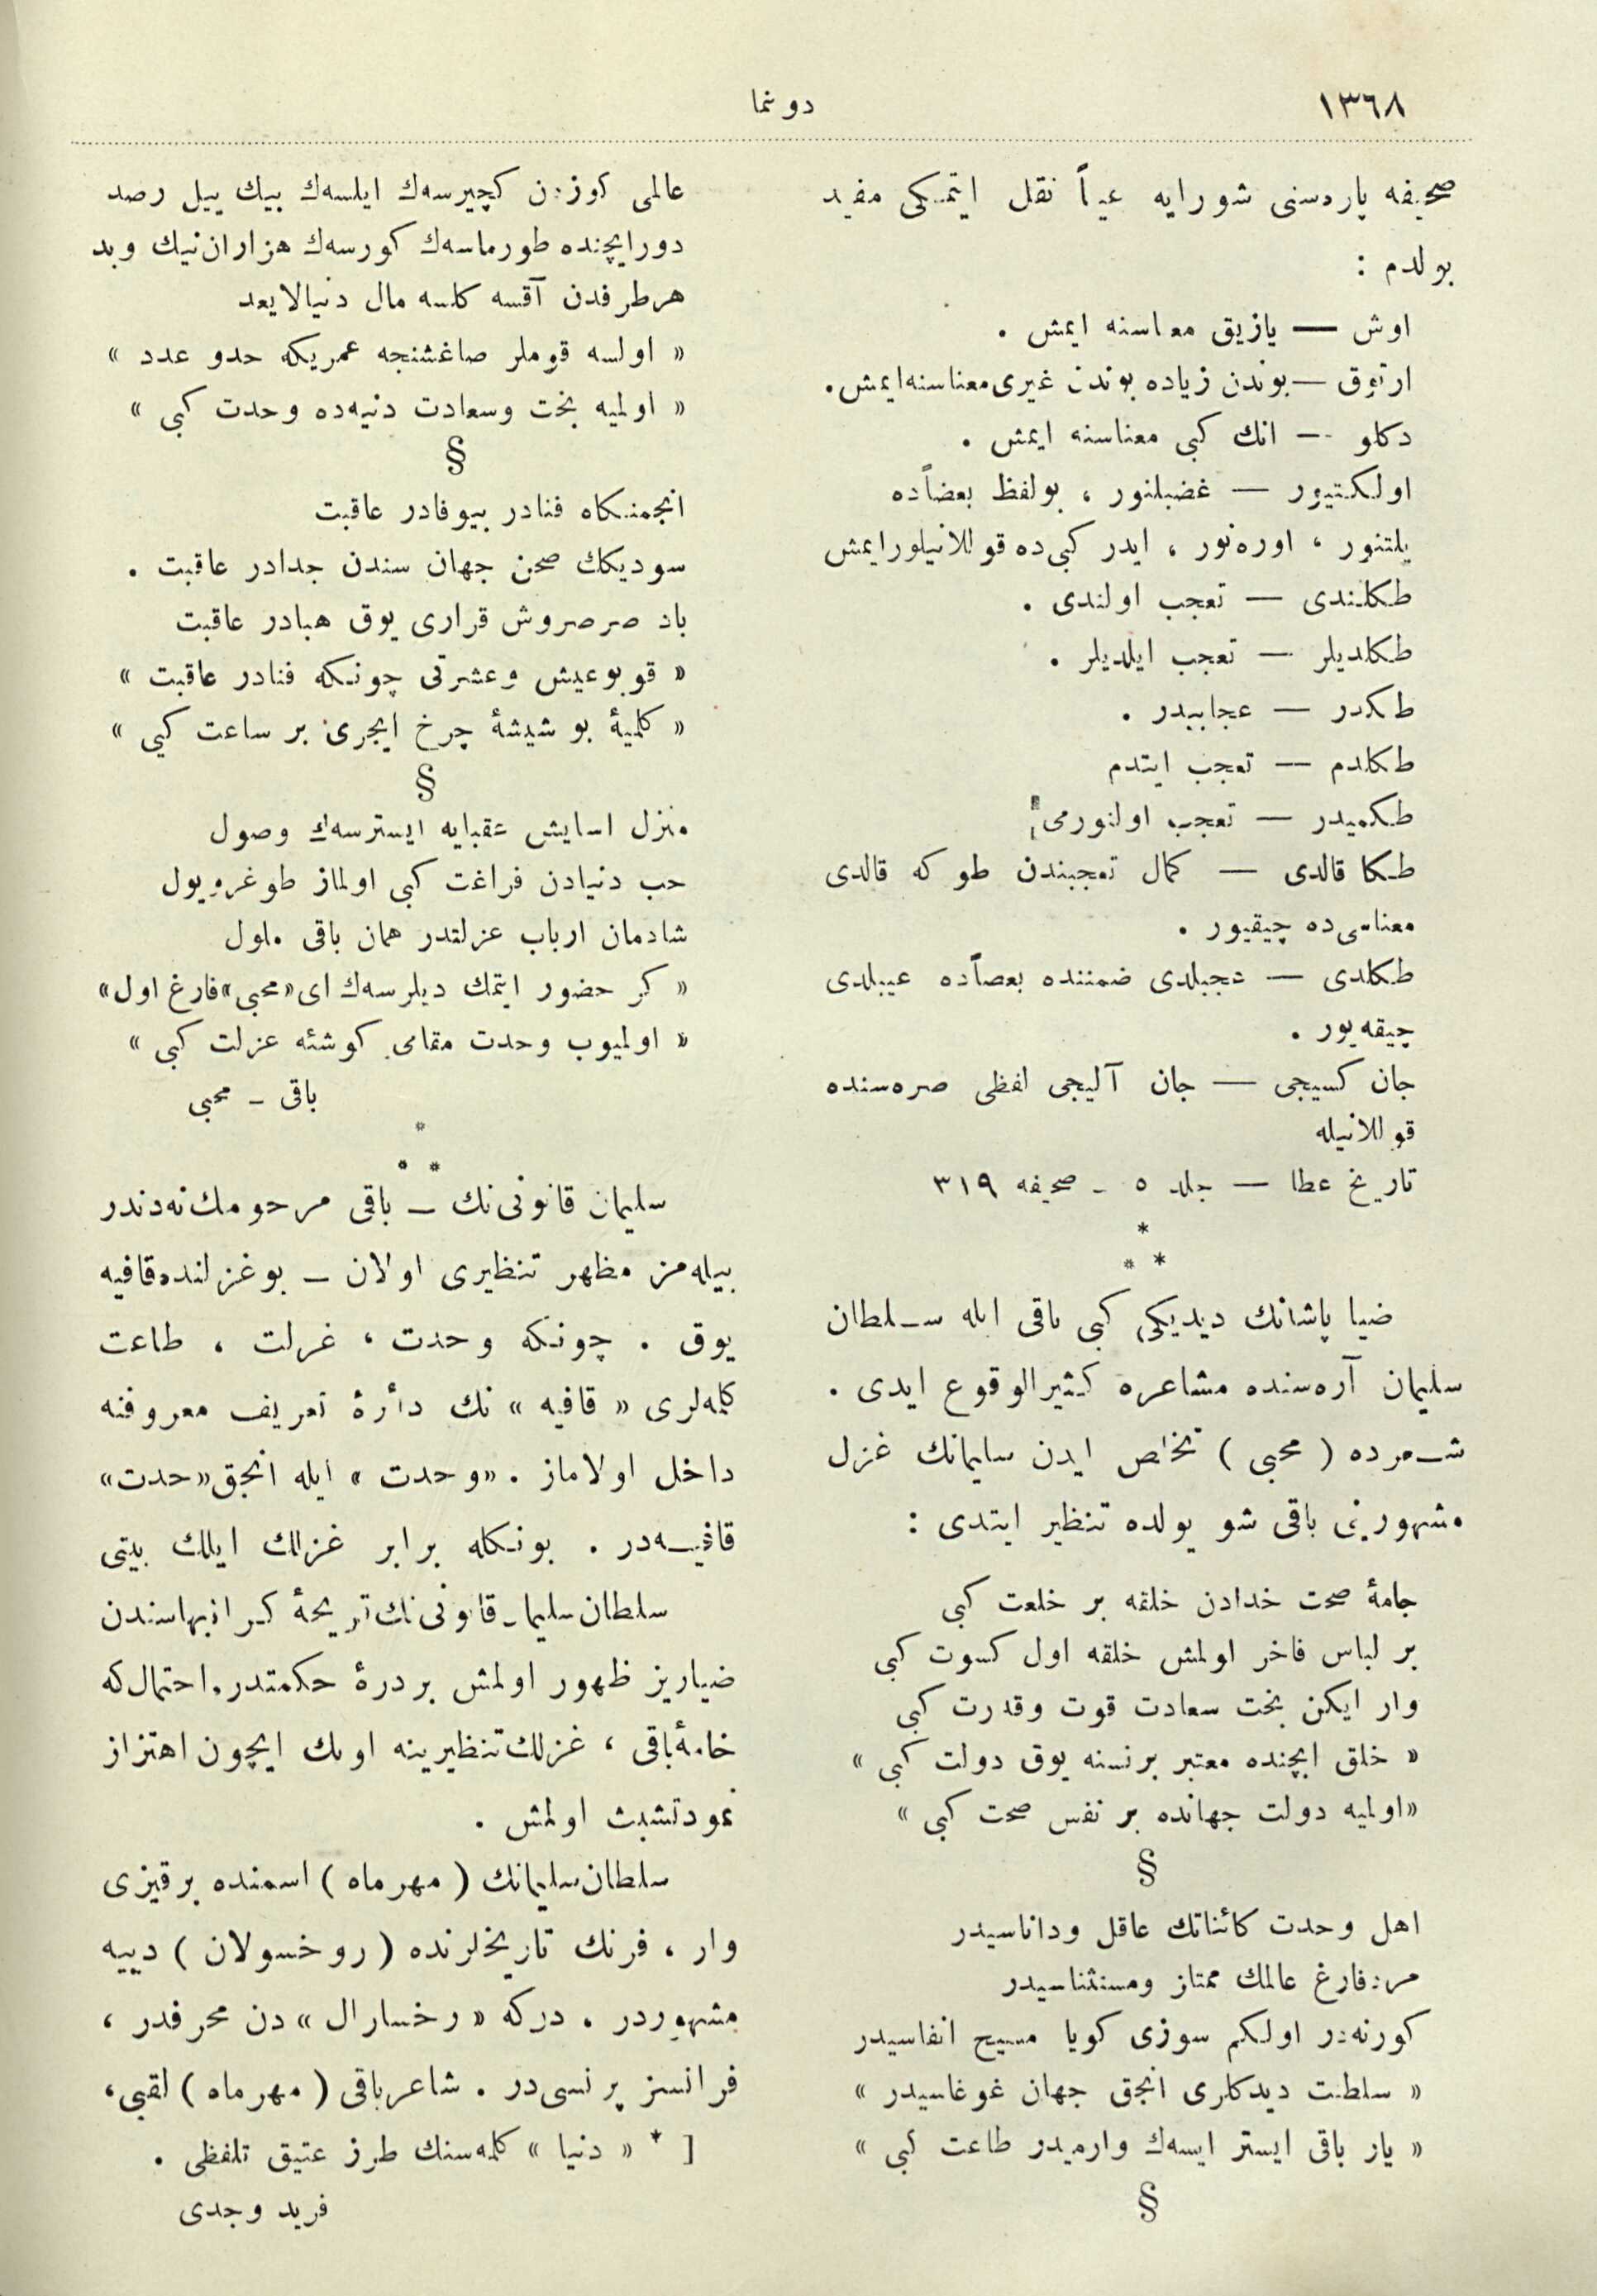 ١٣٦٨
دونما
صحيفه پاره‌سنی شورايه عيناً نقل ايتمـكی مفيد
بولدم :
اوش — يازيق معناسنه ايمش .
ارتوق — بوندن زياده بوندن غيری معناسنه ايمش .
دكلو — انك كبی معناسنه ايمش .
اولـكـتيور — غضبلنور ، بولفظ بعضاً ده
يلتنور ، اوره‌نور ، ايدر كبی ده قوللانيلور ايمش
طـكلـندی — تعجب اولندی .
طـكلديلر — تعجب ايلديلر .
طـكدر — عجايبدر .
طـكلدم — تعجب ايتدم
طـكميدر — تعجب اولنورمی
طـكا قالدی — كمال تعجبندن طوكه قالدی
معناسی ده چيقيور .
طـكلدی — تعجبلدی ضمننده بعضاً ده عيبلدی
چيقه‌يور .
جان كسيجی — جان آليجی لفظی صره‌سنده
قوللانيله
تاريخ عطا — جلد ٥ - صحيفه ٣١٩
*
* *
ضيا پاشانك ديديكی كبی باقی ايله سـلطان
سليمان آره‌سنده مشاعره كثيرالوقوع ايدی .
شـعرده ( محبی ) تخلص ايدن سليمانك غزل
مشهورينی باقی شو يولده تنظير ايتدی :
جامهٔ صحت خدادن خلقه بر خلعت كبی
بر لباس فاخر اولمش خلقه اول كسوت كبی
وار ايكن بخت سعادت قوت وقدرت كبی
« خلق ايچنده معتبر برنسنه يوق دولت كبی »
«اولميه دولت جهانده بر نفس صحت كبی »
§
اهل وحدت كائناتك عاقل وداناسيدر
مرد فارغ عالمك ممتاز ومستثناسيدر
كورنه‌در اولـكم سوزی كويا مسيح انفاسيدر
« سلطنت ديدكلری انجق جهان غوغاسيدر »
« يار باقی ايستر ايسه‌ك وارميدر طاعت كبی »
§
عالمی كوزدن كچيرسه‌ك ايلسه‌ك بيك ييل رصد
دور ايچنده طورماسه‌ك كورسه‌ك هزاران نيك وبد
هر طرفدن آقسه كلسه مال دنيا لايعد
« اولسه قوملر صاغشنجه عمريكه حدو عدد »
« اولميه بخت وسعادت دنيه‌ده وحدت كبی »
§
انجمنـكاه فنادر بيوفادر عاقبت
سوديكك صحن جهان سندن جدادر عاقبت .
باد صرصروش قراری يوق هبادر عاقبت
« قو بوعيش وعشرتی چونـكه فنادر عاقبت »
« كلميهٔ بو شيشهٔ چرخ ايچری بر ساعت كبی »
§
منزل اسايش عقبايه ايسترسه‌ك وصول
حب دنيادن فراغت كبی اولماز طوغرو يول
شادمان ارباب عزلتدر همان باقی ملول
« كر حضور ايتمك ديلرسه‌ك ای «محبی» فارغ اول»
« اولميوب وحدت مقامی كوشئه عزلت كبی »
باقی - محبی
*
* *
سليمان قانونی نك — باقی مرحومك نه‌دندر
بيله‌مز مظهر تنظيری اولان — بوغزلنده قافيه
يوق . چونـكه وحدت ، غزلت ، طاعت
كله‌لری « قافيه » نك دأرهٔ تعريف معروفنه
داخل اولاماز . «وحدت » ايله انجق «حدت»
قافيـه‌در . بونـكله برابر غزلك ايلك بيتی
سلطان سليمان قانونی نك قريحهٔ كـرانبهاسندن
ضياريز ظهور اولمش بر درهٔ حكمتدر . احتمال كه
خامهٔ باقی ، غزلك تنظيرينه اونك ايچون اهتزاز
نمود تشبث اولمش .
سلطان سليمانك ( مهرماه ) اسمنده برقيزی
وار ، فرنك تاريخلرنده ( روخسولان ) دييه
مشهوردر . دركه « رخسارال » دن محرفدر ،
فرانسز پرنسی در . شاعر باقی ( مهرماه ) لقبی ،
[ * « دنيا » كله‌سنك طرز عتيق تلفظی .
فريد وجدی